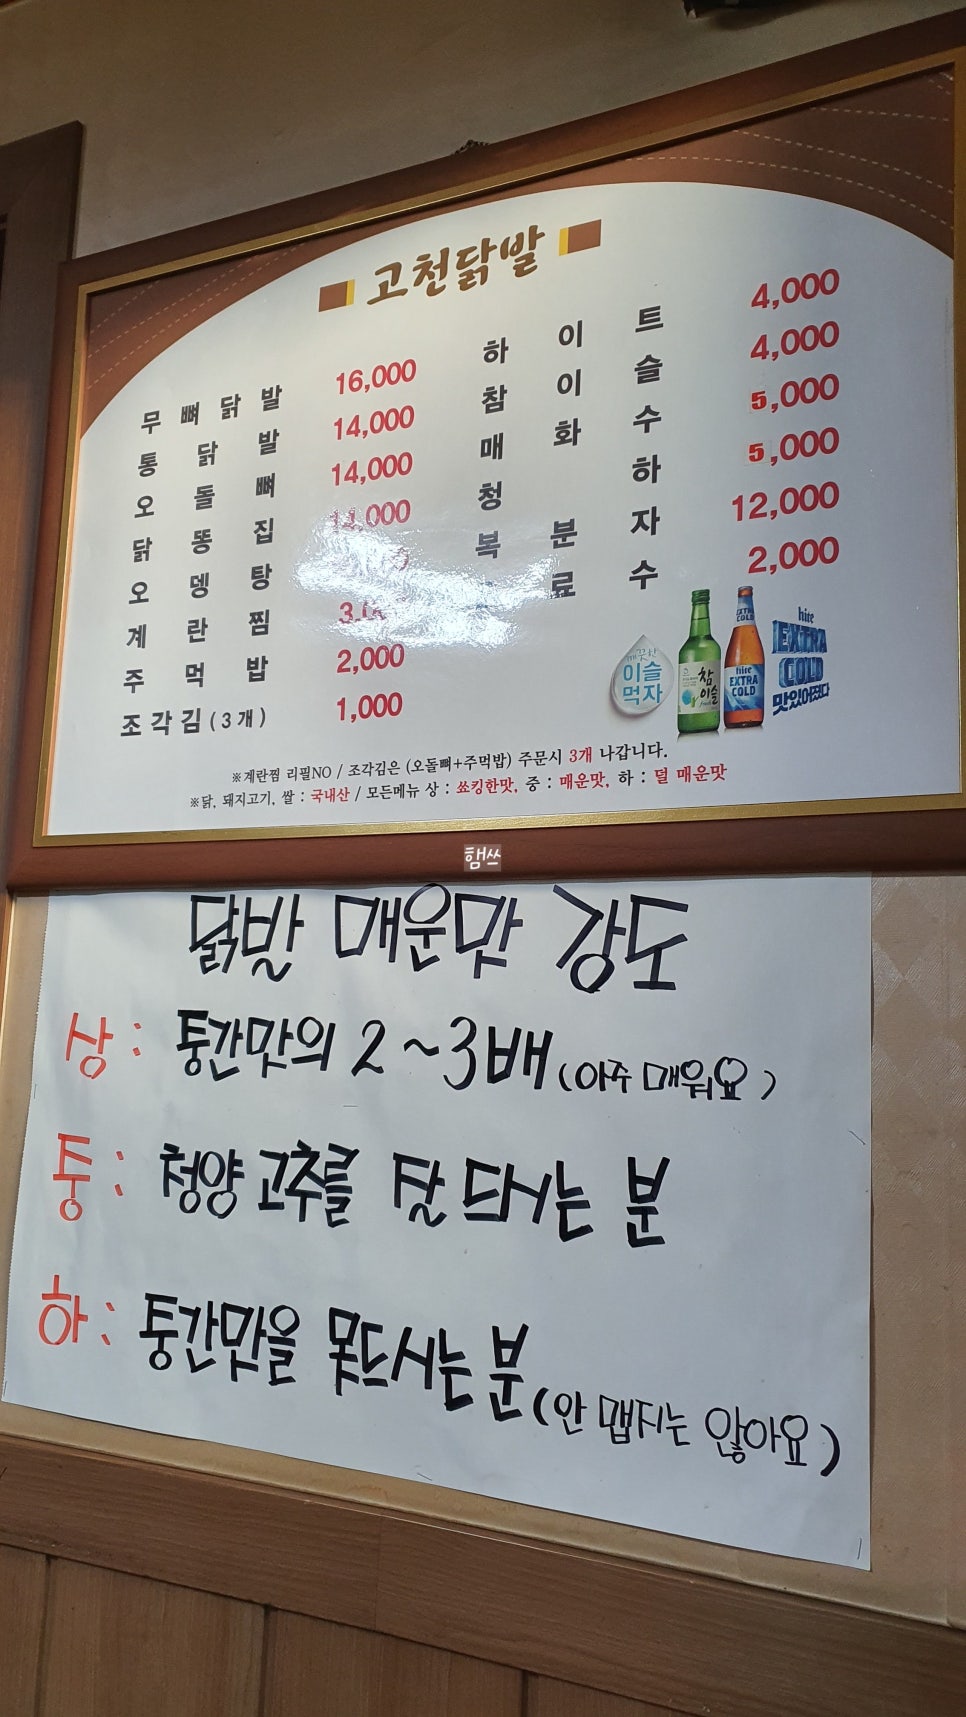 고천닭발
무뼈닭발 16,000
통닭발 14,000
오돌뼈 14,000
닭똥집 14,000
오뎅탕
계란찜
주먹밥 2,000
조각김(3개) 1,000
하이트 4,000
참이슬 4,000
매화수 5,000
청하 5,000
복분자 12,000
료수 2,000
깨끗한
이슬
먹자
참
이슬
EXTRA
COLD
hite
EXTRA
COLD
hite
EXTRA
COLD
맛있어졌다
※계란찜 리필NO / 조각김은 (오돌뼈+주먹밥) 주문시 3개 나갑니다.
※닭, 돼지고기, 쌀 : 국내산 / 모든메뉴 상 : 쑈킹한맛, 중 : 매운맛, 하 : 덜 매운맛
햄쓰
닭발 매운맛 강도
상 : 중간맛의 2~3배 (아주 매워요)
중 : 청양 고추를 잘 드시는 분
하 : 중간맛을 못드시는 분 (안 맵지는 않아요)